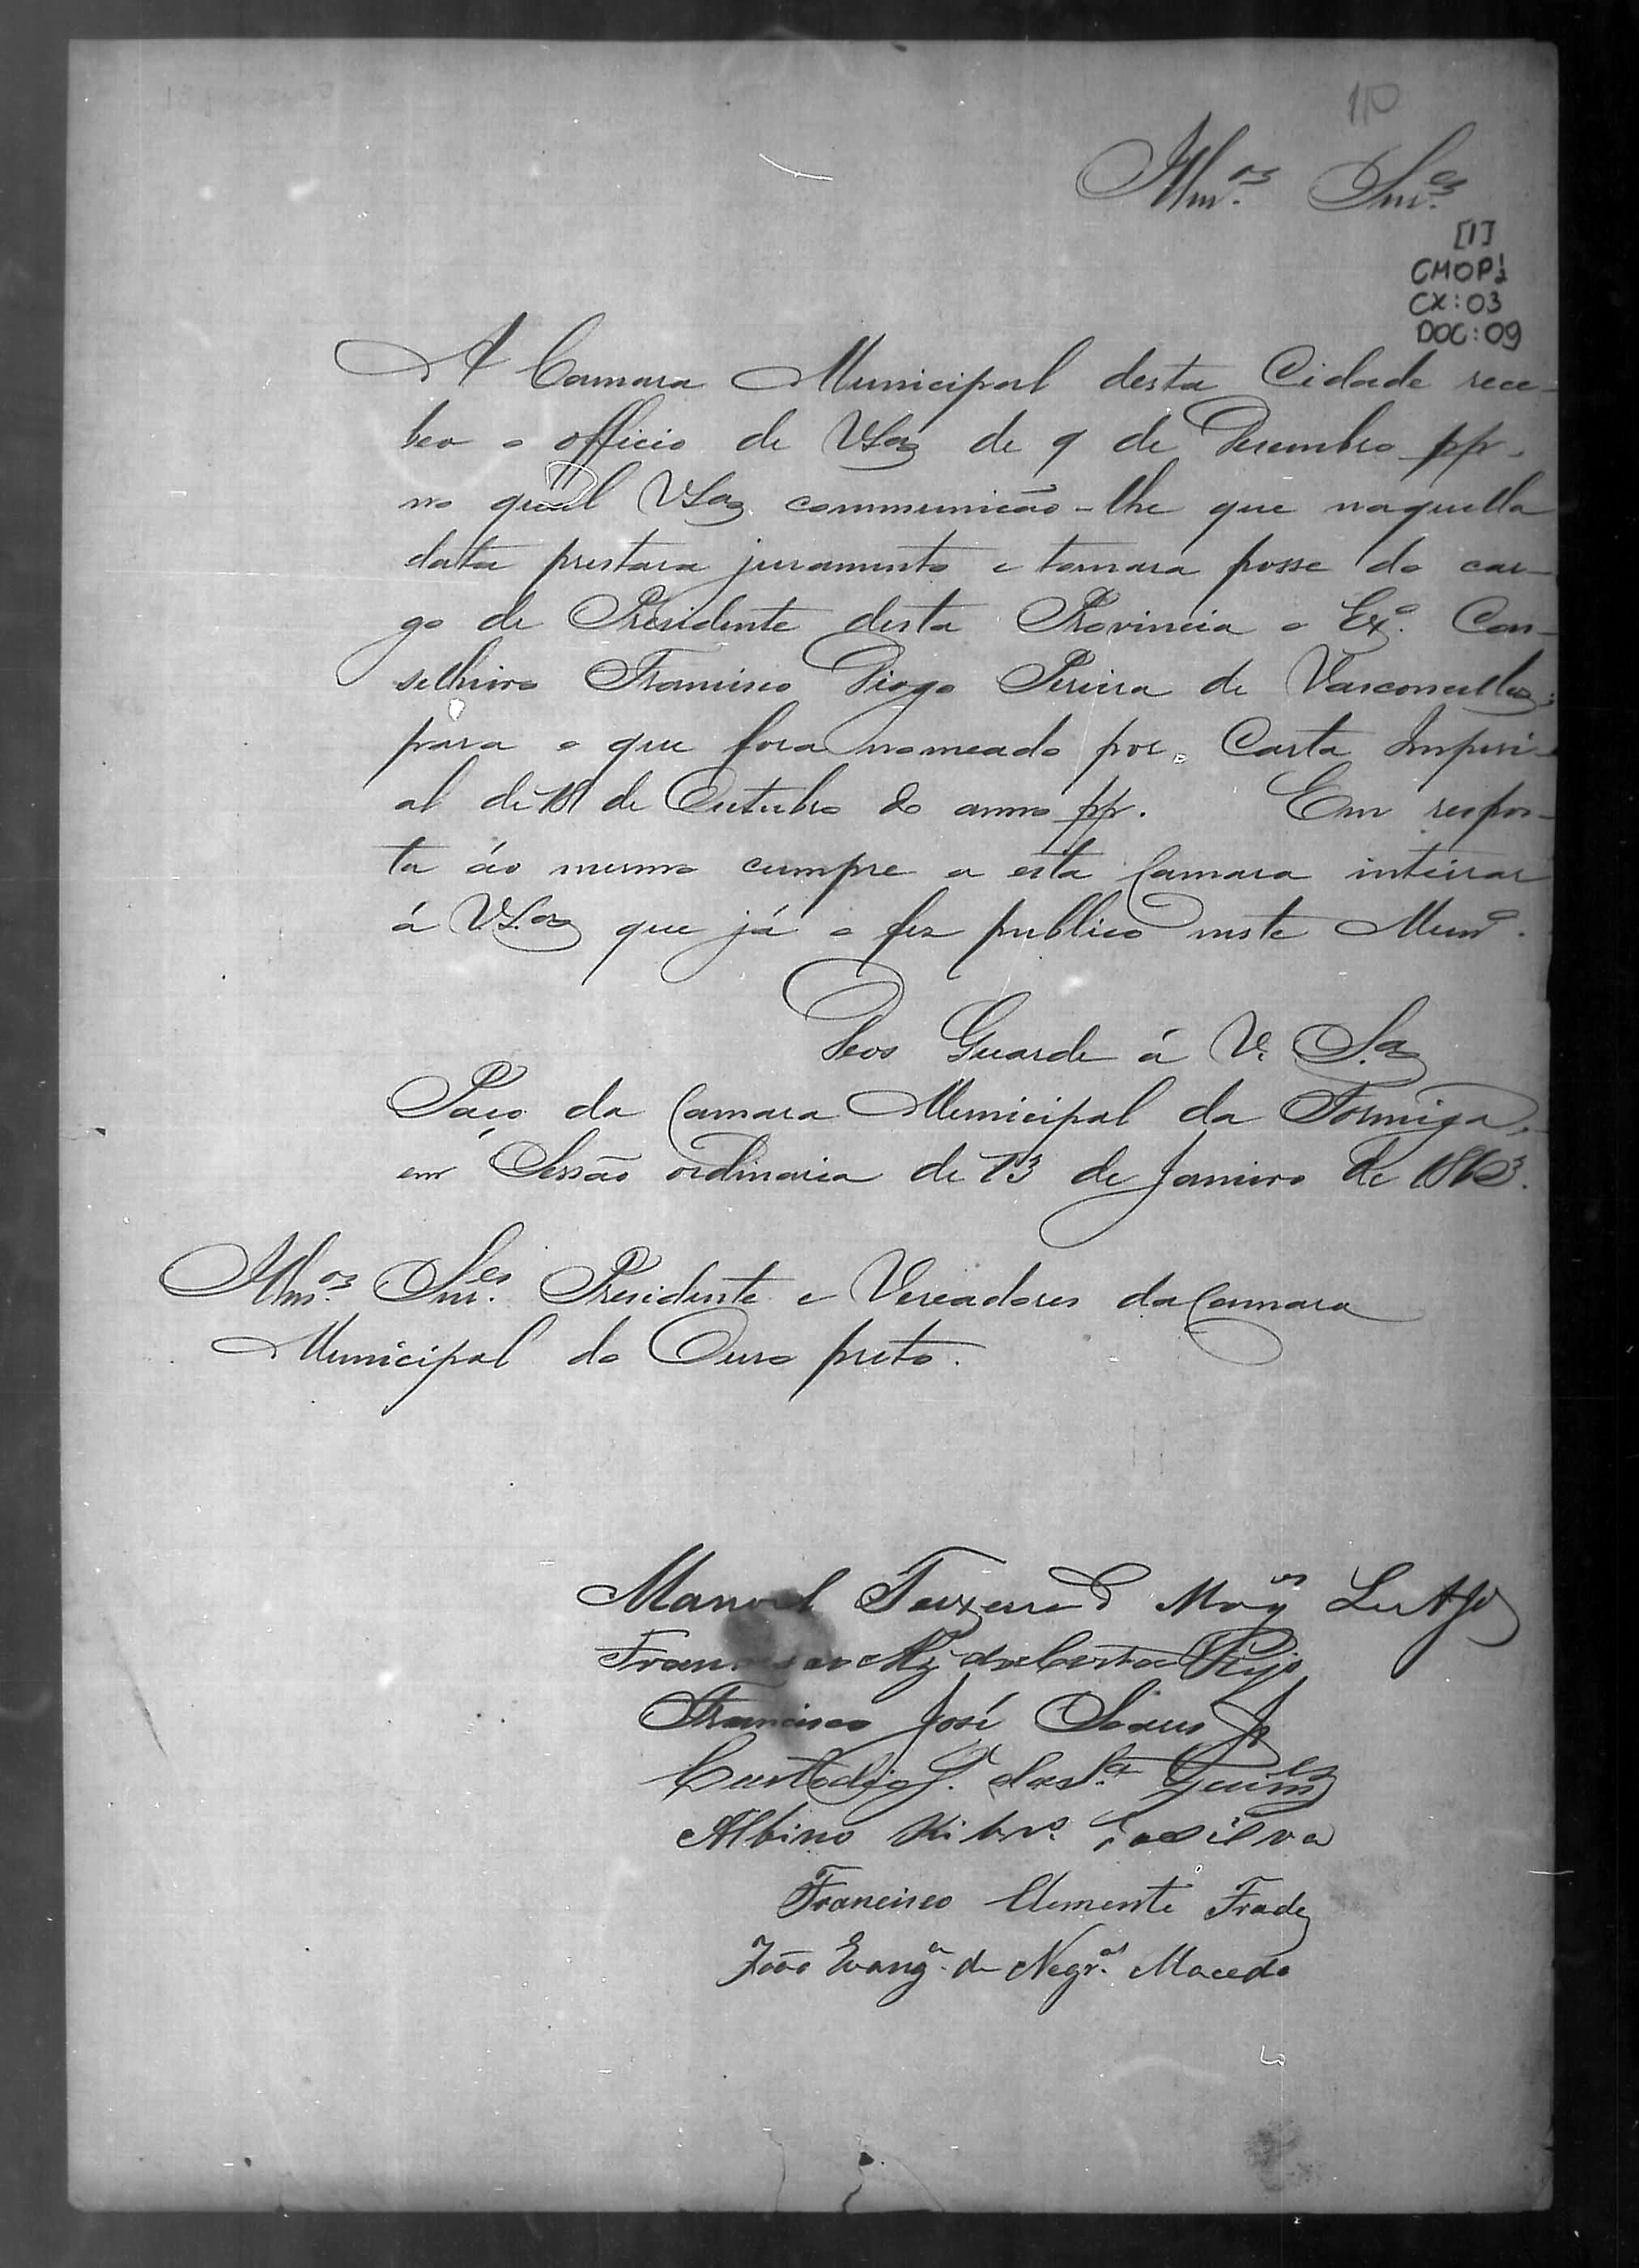 110
Illm.os Snr.es
[1]
CMOP 1/2
CX: 03
DOC: 09
A Camara Municipal desta Cidade rece-
beo o officio de VSas de 9 de Desembro pp.
no qual VSas communicão-lhe que naquella
data prestara juramento e tomara posse do car-
go de Presidente desta Provincia o Ex.o Con-
selheiro Francisco Diogo Pereira de Vasconcellos;
para o que fora nomeado por Carta Imperi-
al de 18 de Outubro do anno pp. Em respos-
ta áo mesmo cumpre a esta Camara inteirar
á VS.as que já o fez publico neste Mun.o
Deos Guarde á V. S.as
Paço da Camara Municipal da Formiga,
em Sessão ordinaria de 13 de Janeiro de 1863.
Illm.os Snr.es Presidente e Vereadores da Camara
Municipal do Ouro preto.
Manoel Teixeira
Francisco da Costa
Francisco José Soares Jr
Custodio J. da S.a Guim.es
Albino Ribr.o da Silva
Francisco Clemente Frade
João Evang.a de Negr.os Macedo